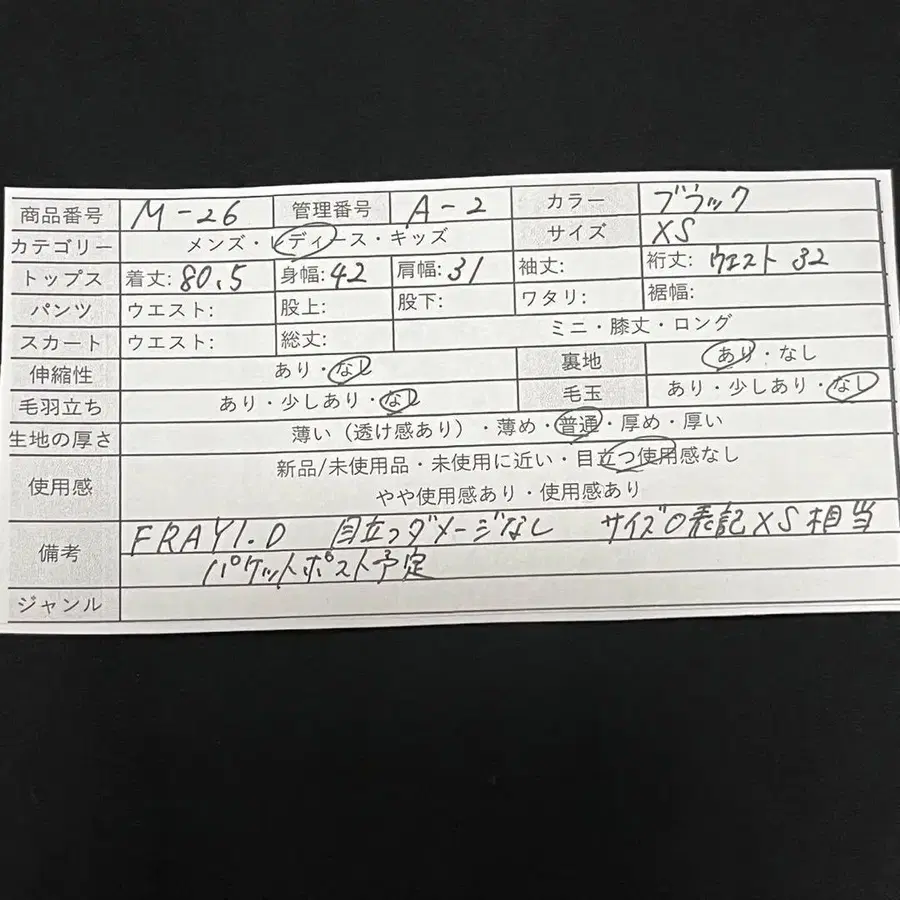 商品番号 M-26 管理番号 A-2 カラー ブラック
カテゴリー メンズ・レディース・キッズ サイズ XS
トップス 着丈: 80.5 身幅: 42 肩幅: 31 袖丈: 裄丈: ウエスト 32
パンツ ウエスト: 股上: 股下: ワタリ: 裾幅:
スカート ウエスト: 総丈: ミニ・膝丈・ロング
伸縮性 あり・なし 裏地 あり・なし
毛羽立ち あり・少しあり・なし 毛玉 あり・少しあり・なし
生地の厚さ 薄い（透け感あり）・薄め・普通・厚め・厚い
使用感 新品/未使用品・未使用に近い・目立つ使用感なし
やや使用感あり・使用感あり
備考 FRAYI.D 目立つダメージなし サイズ0表記XS相当
パケットポスト予定
ジャンル